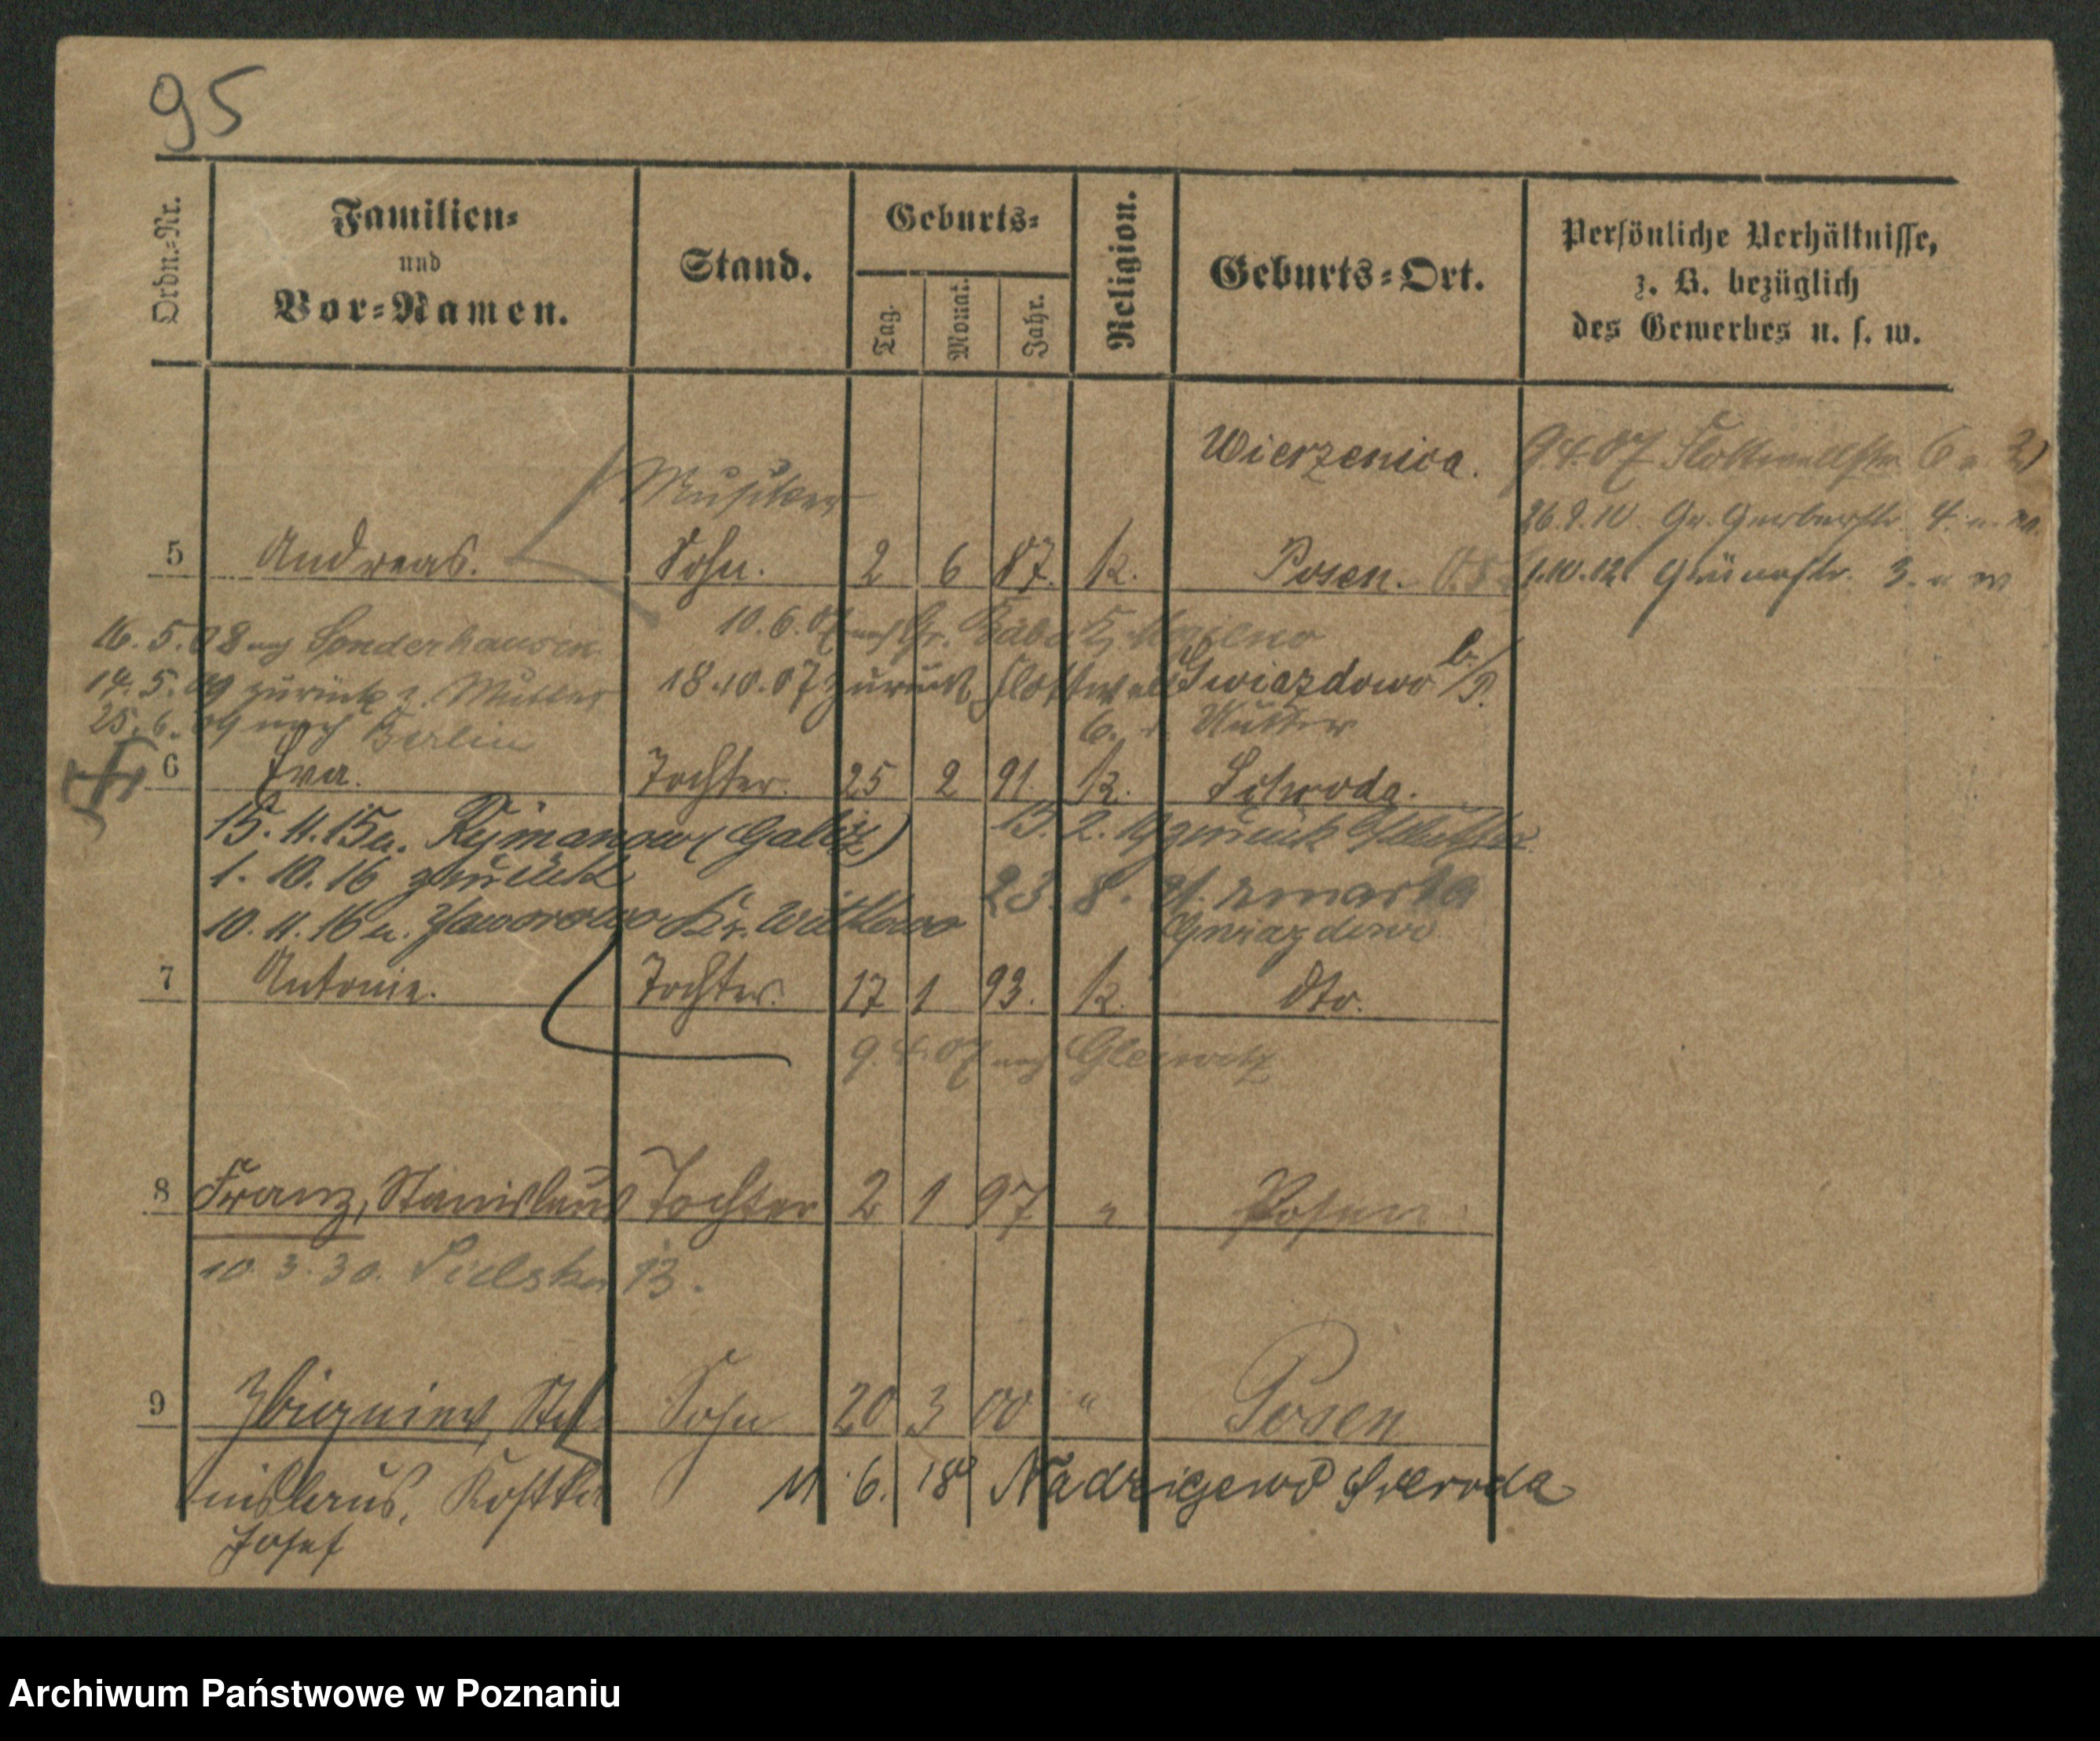 95
Ordn.-Nr.
Familien-
und
Vor-Namen.
Stand.
Geburts-
Tag.
Monat.
Jahr.
Religion.
Geburts-Ort.
Persönliche Verhältnisse,
z. B. bezüglich
des Gewerbes u. s. w.
Wierzenica. 9.4.07 Flottwellstr. 6
Musiker
26.9.10. Gr. Gerberstr. 4.
5 Andreas. Sohn. 2 6 87. k. Posen.
1.10.12 Grünestr. 3.
10.6.07 nach Gr.
16.5.08 nach Sonderhausen
18.10.07 zurück Flottwell Gwiazdowo b/P.
14.5.09 zurück z. Mutter
6. Mutter
25.6.09 nach Berlin
6 Eva. Tochter. 25 2 91. k. Schroda.
15.11.15 n. Rymanow (Galiz) 15.2.19 zurück
1.10.16 zurück
23.8. 21. zmarła
10.11.16 n. Jaworowo Kr. Witkowo Gwiazdowo
7 Antonie. Tochter. 17 1 93. k. dto.
9.4.07 nach Gleiwitz
8 Franz, Stanislaus Tochter 2 1 97 " Posen
10.3.30. Sielska 13.
9 Zbigniew, Sta- Sohn 20 3 00 " Posen
nislaus, Kostka 11.6.18 Nadziejewo Schroda
Josef
Archiwum Państwowe w Poznaniu